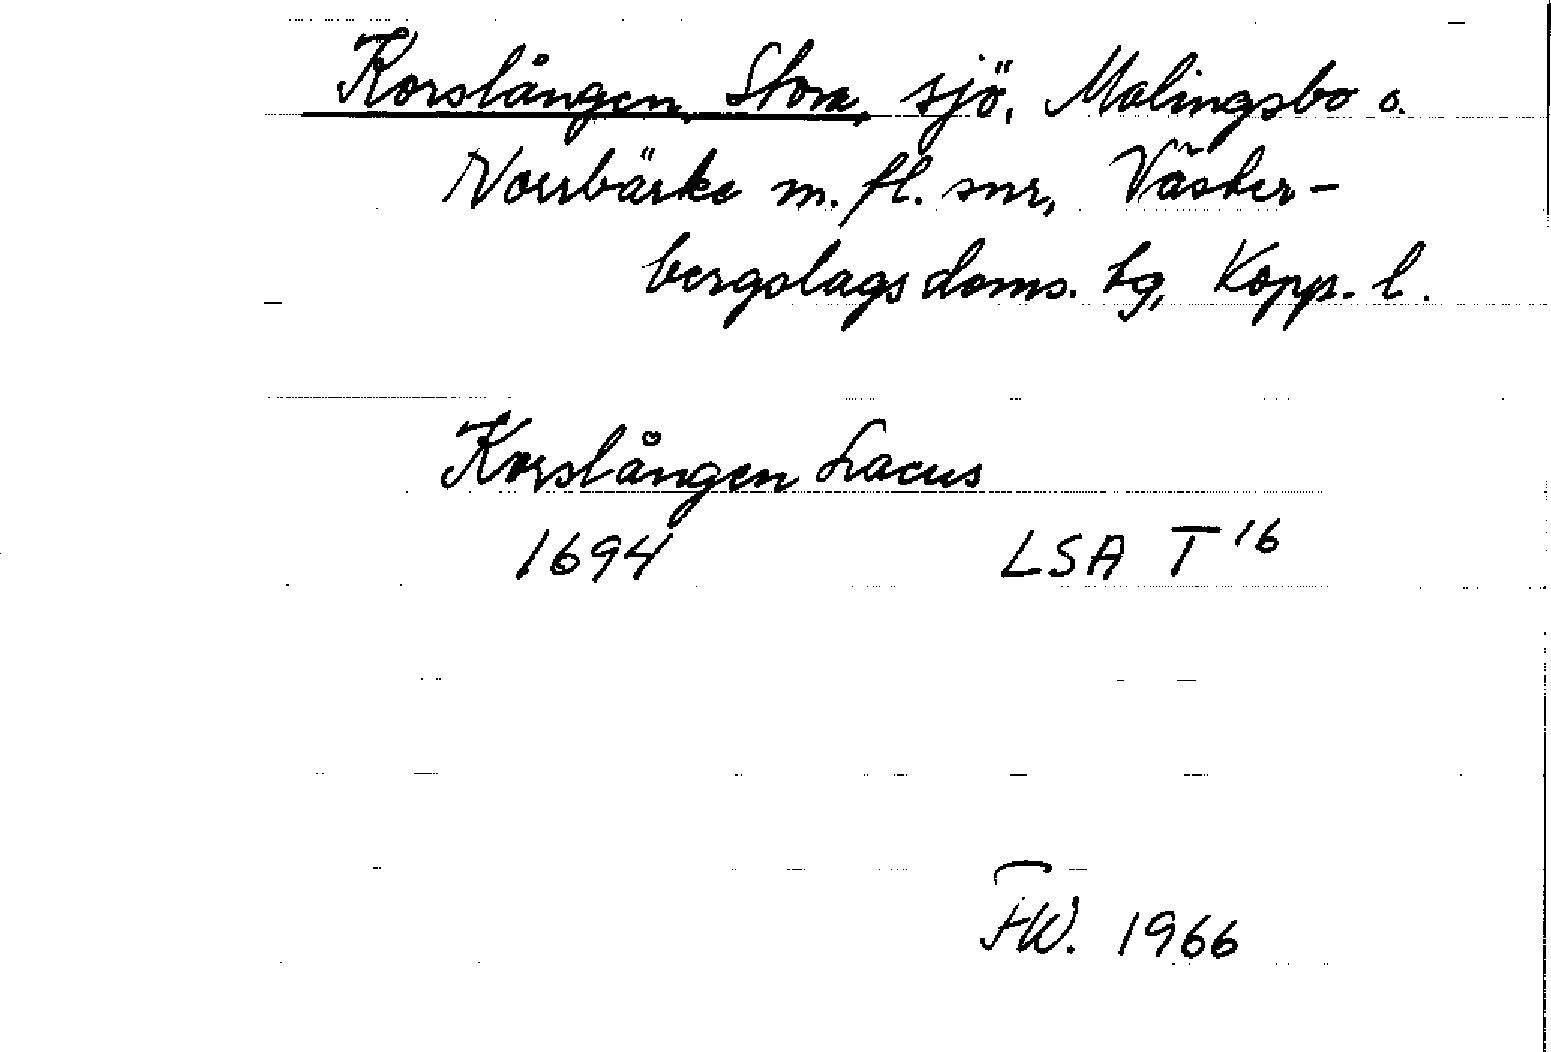 Korslången, Stora, sjö, Malingsbo o.
Norrbärke m. fl. snr, Väster-
bergslags doms. tg, Kopp. l.
Korslången Lacus
1694 LSA T 16
FW. 1966